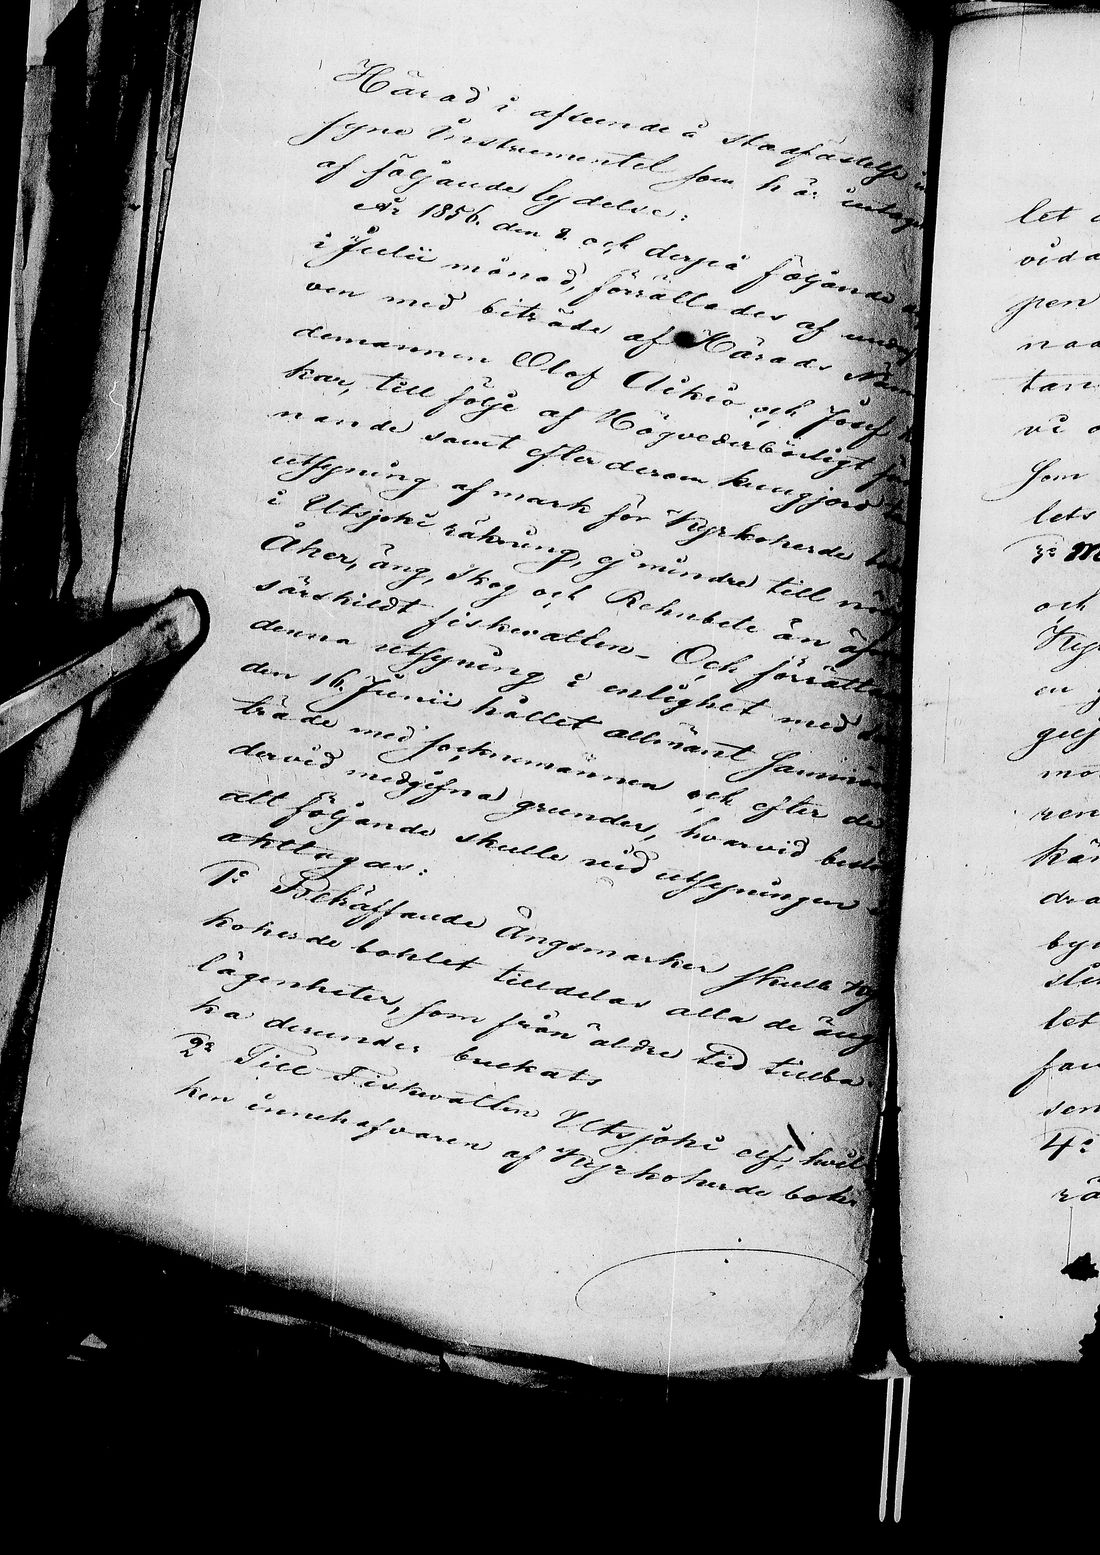 Härad i afseende å stadfästelse
syne Instrumentel som här intages
af följande lydelse:
År 1856. den 8. och derpå följande
i Julii månad, förrättades af under
ven med biträde af Härads Näm
demannen Olof Aikio och Josef
kar, till följe af Högvederbörligt för
nande samt efter derom kungjord
utsyning af mark för Kyrkoherde bo
i Utsjoki räkning, ej mindre till nöd
Åker, äng, Skog och Rehnbete än äfven
särskildt fiskevatten - Och förrättas
denna utsyning i enlighet med
den 16. Junii hållet allmänt Samman
träde med socknemännen och efter de
dervid medgifna grunder, hvarvid bestä
att följande skulle vid utsyningen
akttagas:
1o Beträffande Ängsmarker skulle Kyr
koherde bohlet tilldelas alla de äng
lägenheter, som från äldre tid tillba
ka derunder brukats
2o Till Fiskevatten Utsjoki elf, hvil
ken innehafvaren af Kyrkoherde bohls
let
vida
pen
naa
tan
vi
som
lets
3o
och
Kyr
en
gif
mo
ren
kän
dra
by
let
fau
sen
4o
rä